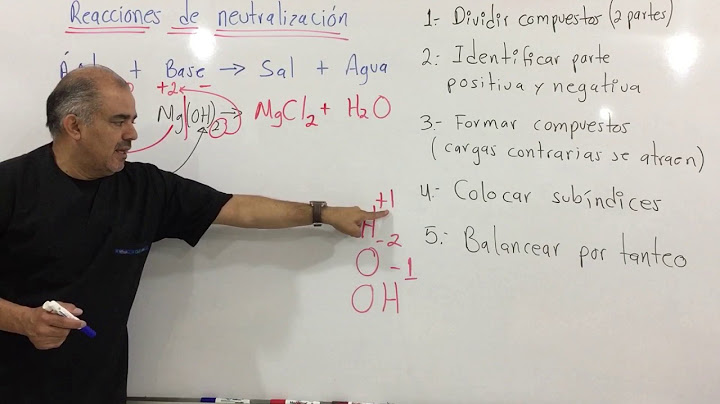 Reacciones de neutralización
+ Base → Sal + Agua
+2 -
Mg(OH)2 → MgCl2 + H2O
H+1
O-2
OH-1
1.- Dividir compuestos (2 partes)
2.- Identificar parte
positiva y negativa
3.- Formar compuestos
(cargas contrarias se atraen)
4.- Colocar subíndices
5.- Balancear por tanteo